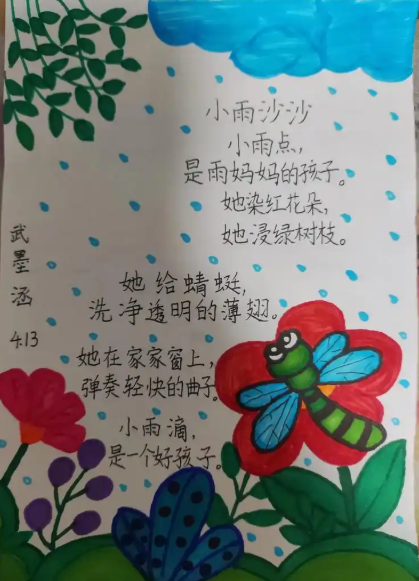 小雨沙沙
小雨点，
是雨妈妈的孩子。
她染红花朵，
她浸绿树枝。
她给蜻蜓，
洗净透明的薄翅。
她在家家窗上，
弹奏轻快的曲子。
小雨滴，
是一个好孩子。
武墨涵
4.13